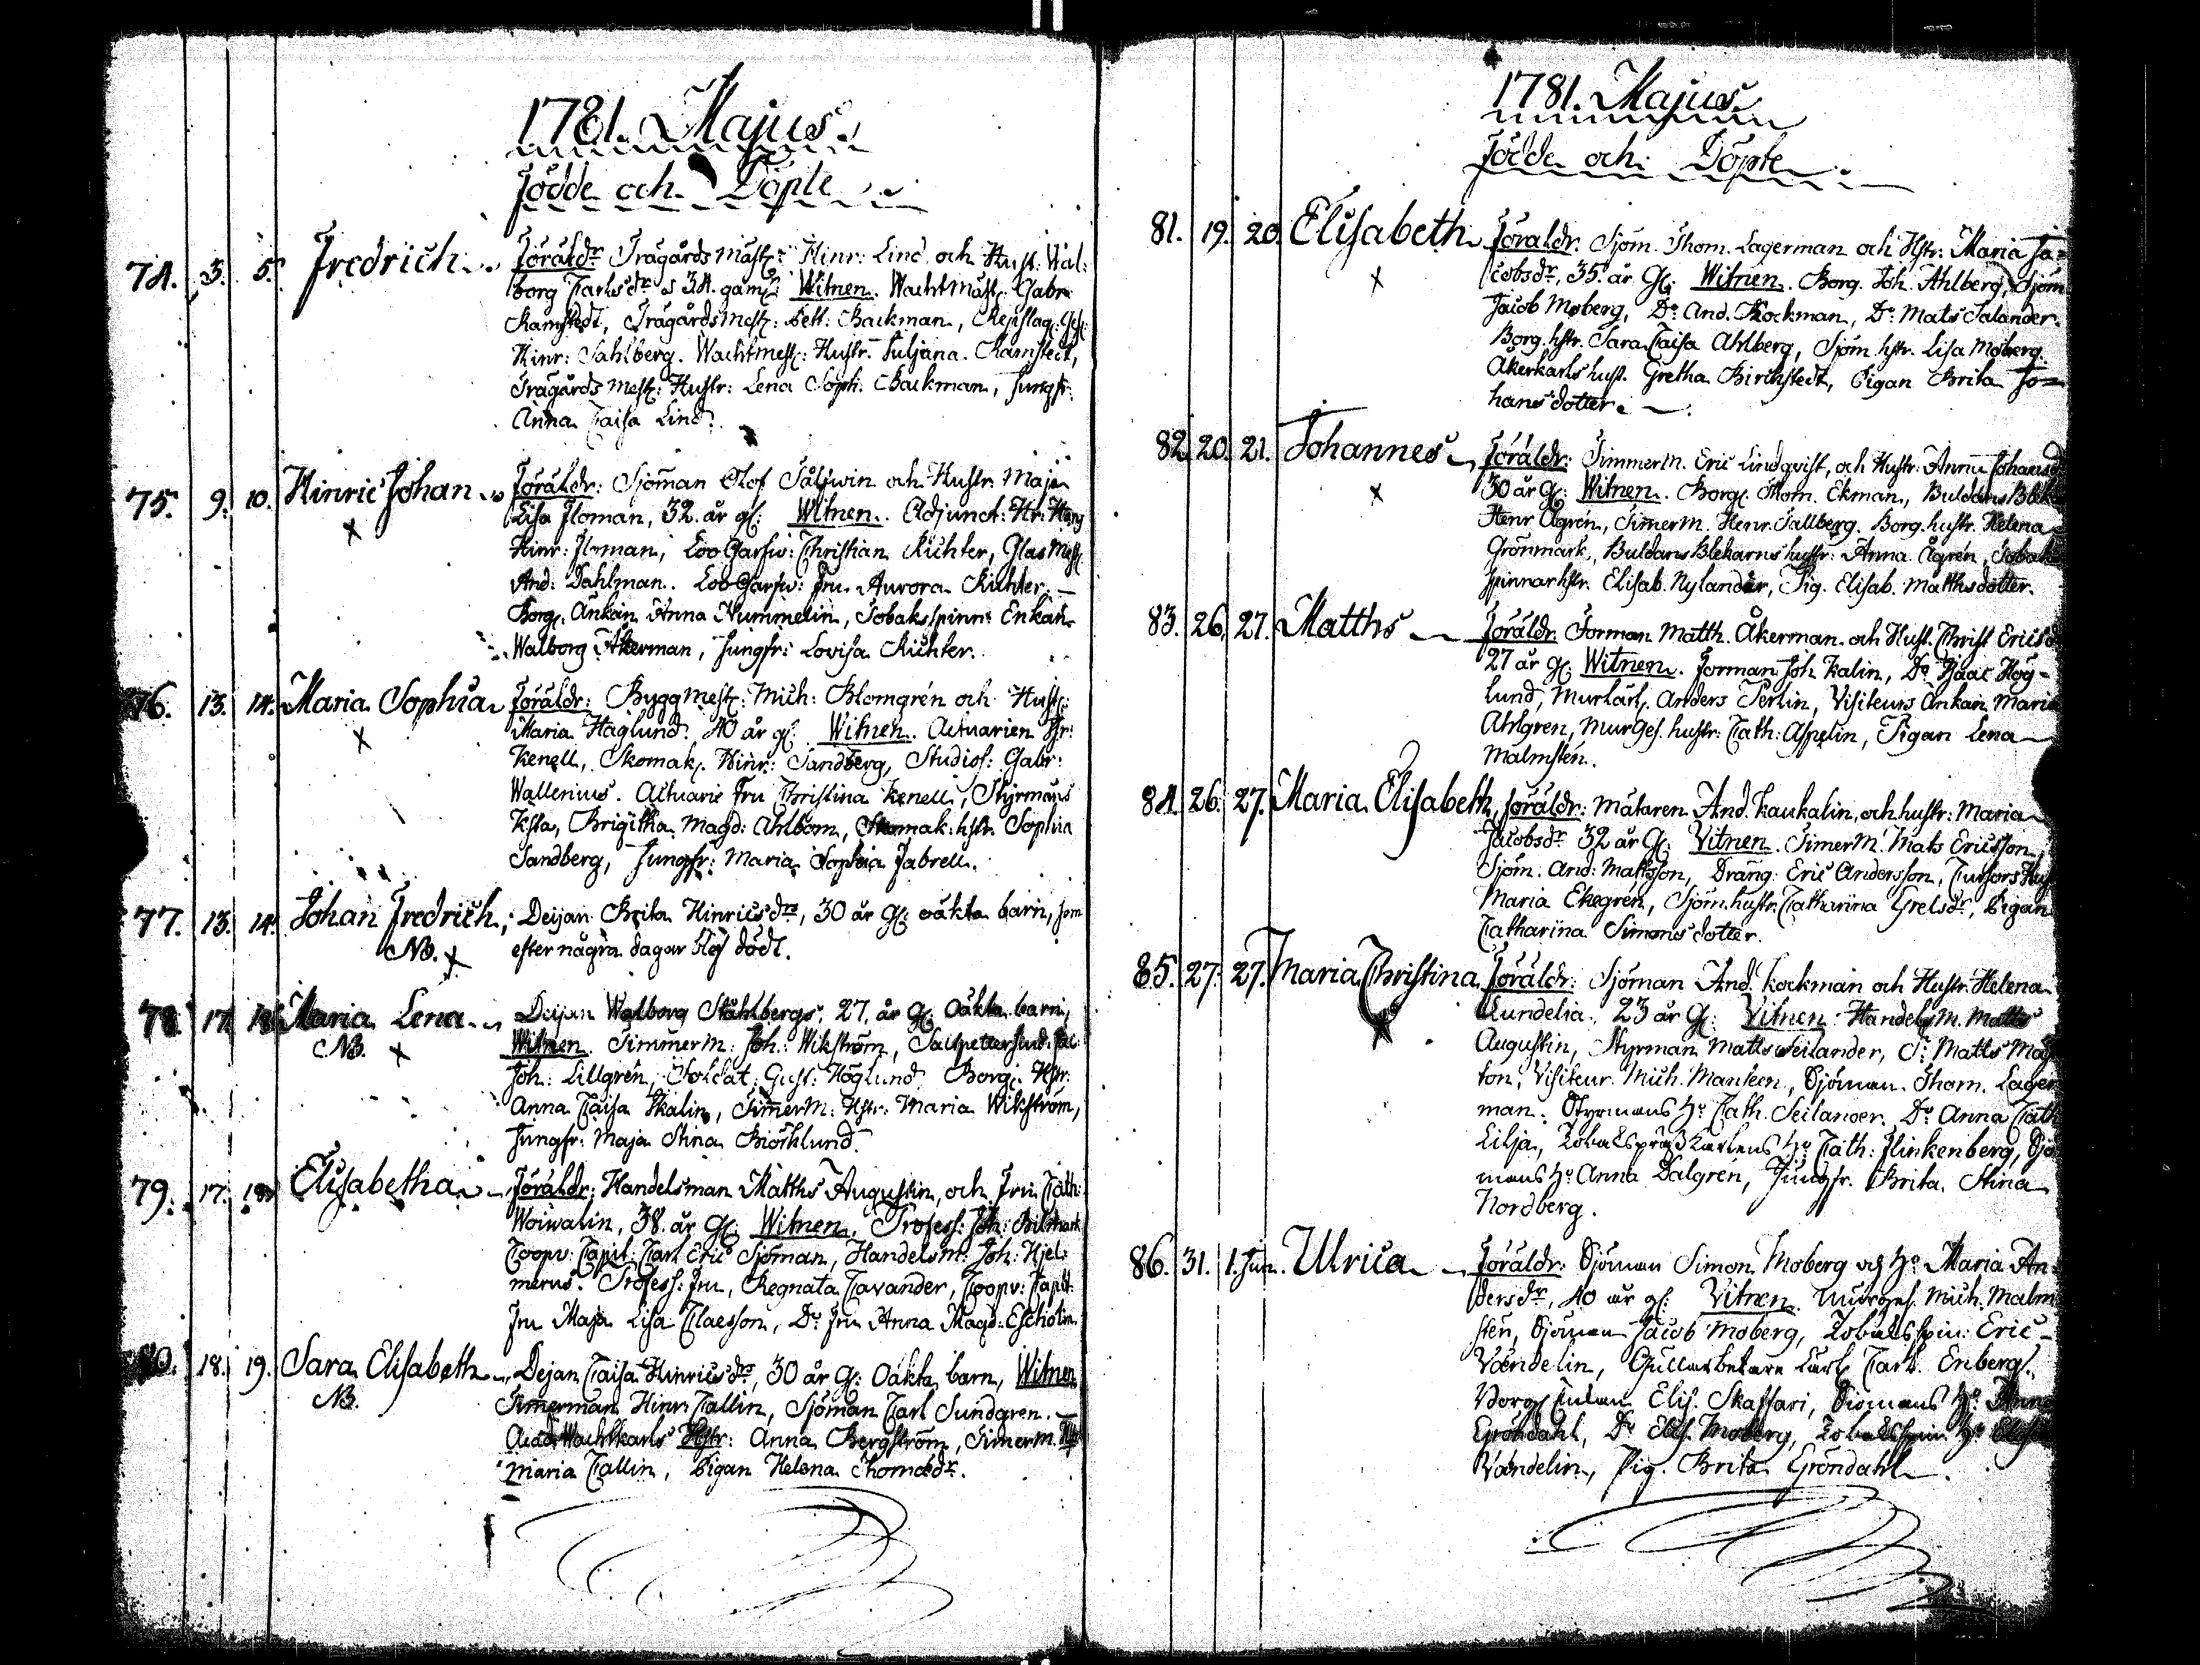 1781. Majus.
Födde och Döpte
74. 3. 5. Fredrich Föräldr Trägårds Mäst: Hinr: Lind och Hust: Wal-
borg Carlsdr a 34. gaml: Witnen. Wachtmäst. Gabr.
Ramstedt, Trägårds Mest: Bett: Backman, Repslag. Ges:
Hinr: Sahlberg. Wachtmest: Hustr. Juljana Ramstedt,
Trägårds mest: Hustr: Lena Soph: Backman, Jungfr:
Anna Caisa Lind.
75. 9. 10. Hinric Johan Föräldr: Sjöman Olof Sälfwin och Hustr: Maja
Lisa Floman, 32. år gl: Witnen. Adjunct: Hr:
Hinr: Floman, Christian Richter, Glas Mest
And: Dahlman. Fru Aurora Richter,
Borg: Ankan Anna Nummelin, Tobaksspinn: Enkan
Walborg Åkerman, Jungfr: Lovisa Richter.
76. 13. 14. Maria Sophia Föräldr: Byggmest: Mich: Blomgrén och Hust:
Maria Haglund. 40 år gl: Witnen. Actuarien Hr:
Kenell, Skomak. Hinr: Sandberg, Studios: Gabr:
Wallerius. Actuarie Fru Christina Kenell, Styrmans
Brigitha Magd: Ahlbom, Skomak: hstr. Sophia
Sandberg, Jungfr: Maria Sophia Fabrell.
77. 13. 14. Johan Fredrich; Deijan Brita Hinricsdr, 30 år gl: oäkta barn, som
NB. efter några dagar blef dödt.
78 17 18 Maria Lena Deijan Walborg Ståhlbergs, 27. år gl: Oäkta barn,
NB. Witnen. Timmerm: Joh: Wikström,
Joh: Lillgrén, Soldat: Gust: Höglund Borg: Hstr:
Anna Caisa Skalin, Timmerm: Hstr: Maria Wikström,
Jungfr: Maja Stina Biörklund.
79. 17. 18 Elisabetha Föräldr: Handelsman Matths Augustin, och Fru Cath:
Woiwalin, 38. år gl: Witnen. Profess: Joh: Bilmark
Coopv: Capit: Carl Eric Sjöman, Handelsm: Joh: Hjel-
merus. Profess: Fru, Regnata Cavander, Coopv: Capit:
Fru Maja Lisa Claesson, Do Fru Anna Magd: Escholin
80. 18. 19. Sara Elisabeth Dejan Caisa Hinricsdr, 30 år gl: Oäkta barn, Witnen
NB. Timerman Hinr: Callin, Sjöman Carl Sundgren.
Hstr: Anna Bergström, Timerm.
Maria Callin, Pigan Helena Thomædr.
1781. Majus.
Födde och Döpte
81. 19. 20. Elisabeth Föräldr. Sjöm. Thom. Lagerman och Hstr: Maria Ja-
cobsdr, 35. år gl: Witnen. Borg. Joh. Ahlberg, Sjöm
Jacob Moberg, Do And. Kockman, Do Mats Salander.
Borg. hstr. Sara Caisa Ahlberg, Sjöm. hstr. Lisa Moberg.
Åkerkarls hust. Gretha Birckstedt, Pigan Brita Jo-
hans dotter.
82. 20. 21. Johannes Föräldr: Timmerm. Eric Lindqvist, och Hustr: Anna Johansd
30 år gl: Witnen. Borg. Thom. Ekman, Buldans Blek
Henr Ågrén, Timerm. Henr. Sallberg. Borg. hustr. Helena
Grönmark, Buldans Blekarns hustr: Anna Ågrén, Tobaks
spinnar hstr. Elisab. Nylander, Pig. Elisab. Matthsdotter.
83. 26. 27. Matths Föräldr. Forman Matth. Åkerman och Hust. Christ Ericsd
27 år gl: Witnen. Forman Joh. Kalin, Do Isaac Hög-
lund, Murkarl. Anders Perlin, Visiteurs Ankan Maria
Ahlgren, Murges. hustr: Cath: Aspelin, Pigan Lena
Malmstén.
84. 26. 27. Maria Elisabeth, Föräldr: Mätaren And. Kaukalin, och hustr: Maria
Jacobsdr 32 år gl: Vitnen. Timerm: Mats Ericsson
Sjöm. And: Matsson, Dräng: Eric Andersson, Cursors Hus
Maria Ekegrén, Sjöm. hustr. Catharina Grelsdr, Pigan
Catharina Simons dotter.
85. 27. 27. Maria Christina Föräldr: Sjöman And. Kockman och Hustr: Helena
Lundelia, 23 år gl: Vitnen Handelsm. Matts
Augustin, Styrman Matts Seilander, Matts
ton, Visiteur. Mich: Manleen, Sjöman Thom. Lager
man. Styrmans Hu Cath. Seilander. Do Anna Cath
Lilja, Cath: Flinkenberg, Sjö
mans Hu Anna Dalgrén, Jungfr. Brita Stina
Nordberg.
86. 31. 1. Jun. Ulrica Föräldr: Sjöman Simon Moberg och Hu Maria An-
dersdr, 40 år gl: Vitnen. Murges. Mich. Malm
stén, Sjöman Jacob Moberg, Tobaksspin: Eric
Wændelin, Carl Enberg.
Borg Enkan Elis. Skaffari, Siömans Hu Anna
Gröndahl, Do Elis. Moberg, Tobaksspin Hu
Wændelin, Pig. Brita Gröndahl.